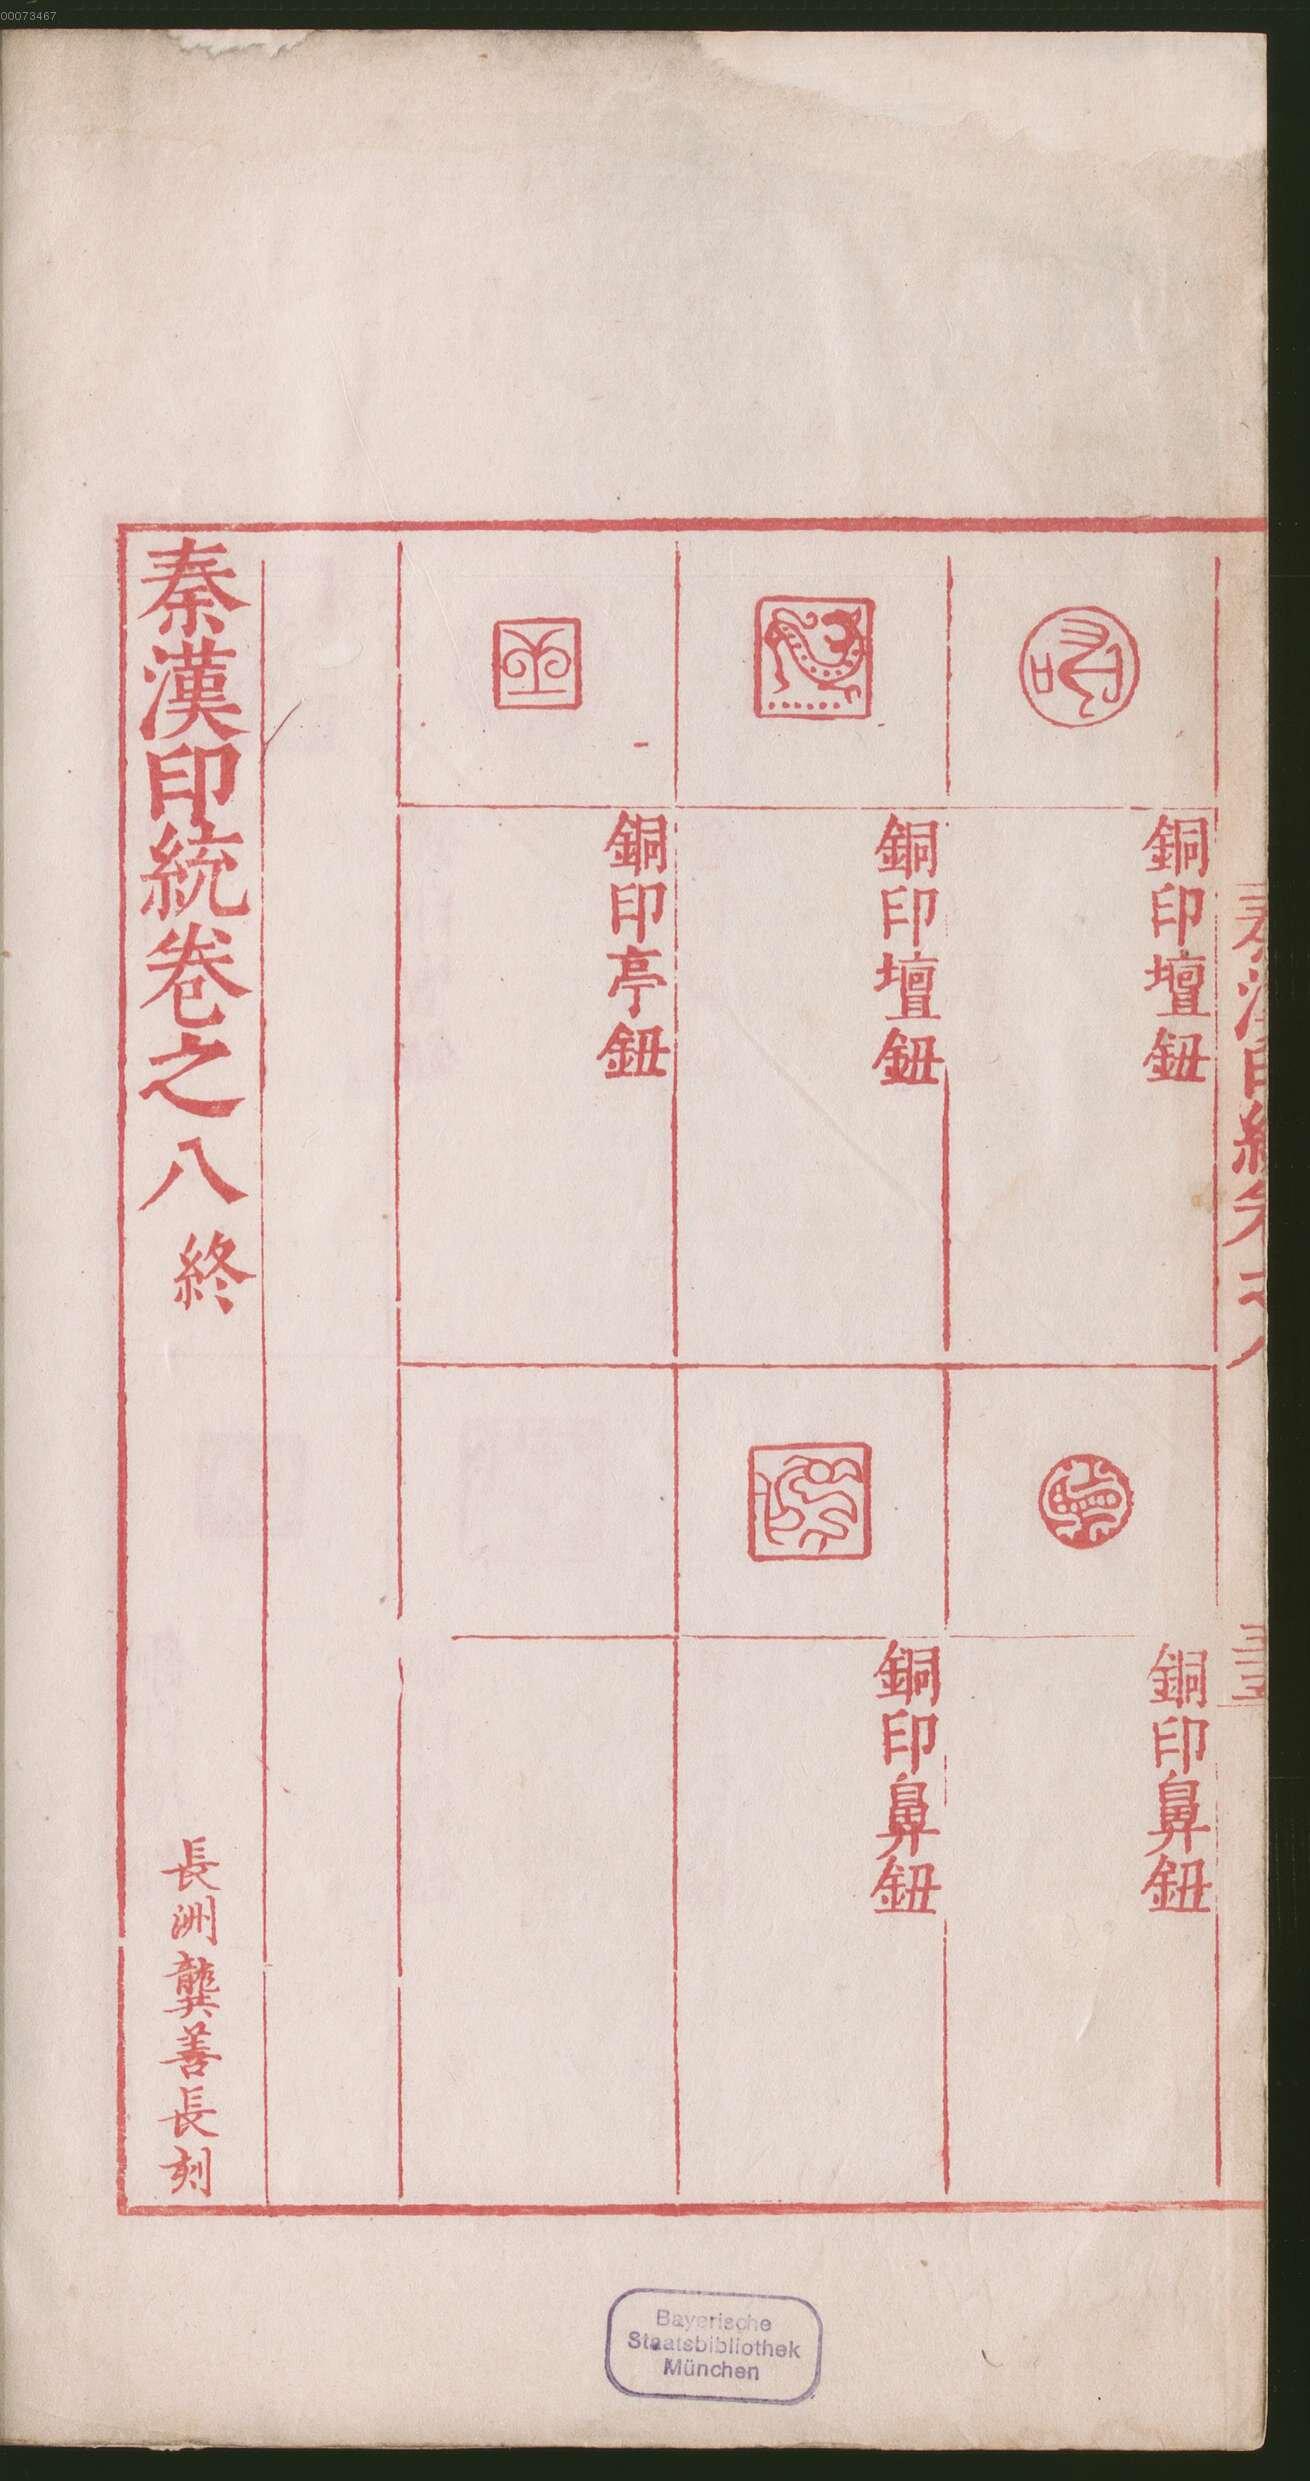 00073467
秦漢印統卷之八
銅印壇鈕
銅印鼻鈕
銅印壇鈕
銅印鼻鈕
銅印亭鈕
秦漢印統卷之八終
長洲龔善長刻
Bayerische
Staatsbibliothek
München